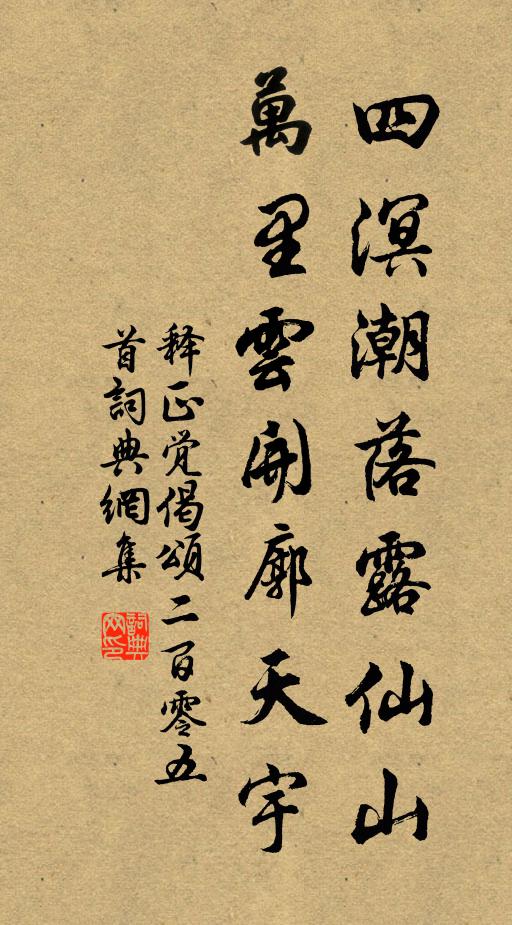 四溟潮落露仙山
萬里雲開廓天宇
释正觉偈頌二百零五
首詞典網集
詞典
网印